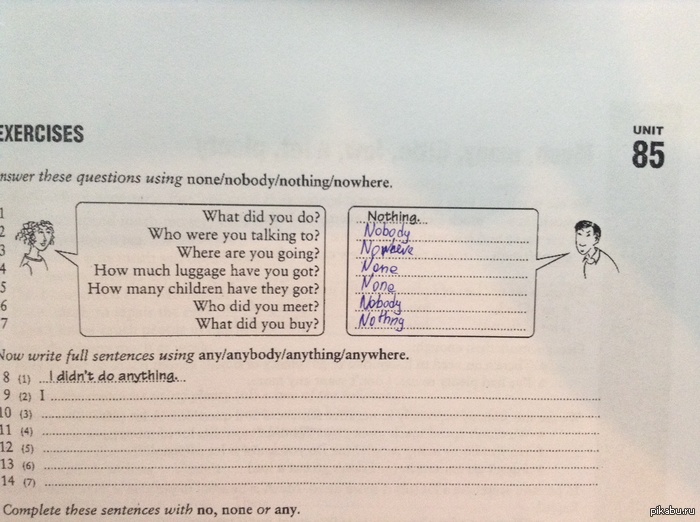 EXERCISES
UNIT
85
nswer these questions using none/nobody/nothing/nowhere.
1 What did you do? Nothing.
2 Who were you talking to? Nobody
3 Where are you going? Nowhere
4 How much luggage have you got? None
5 How many children have they got? None
6 Who did you meet? Nobody
7 What did you buy? Nothng
Now write full sentences using any/anybody/anything/anywhere.
8 (1) I didn't do anything.
9 (2) I
10 (3)
11 (4)
12 (5)
13 (6)
14 (7)
Complete these sentences with no, none or any.
pikabu.ru